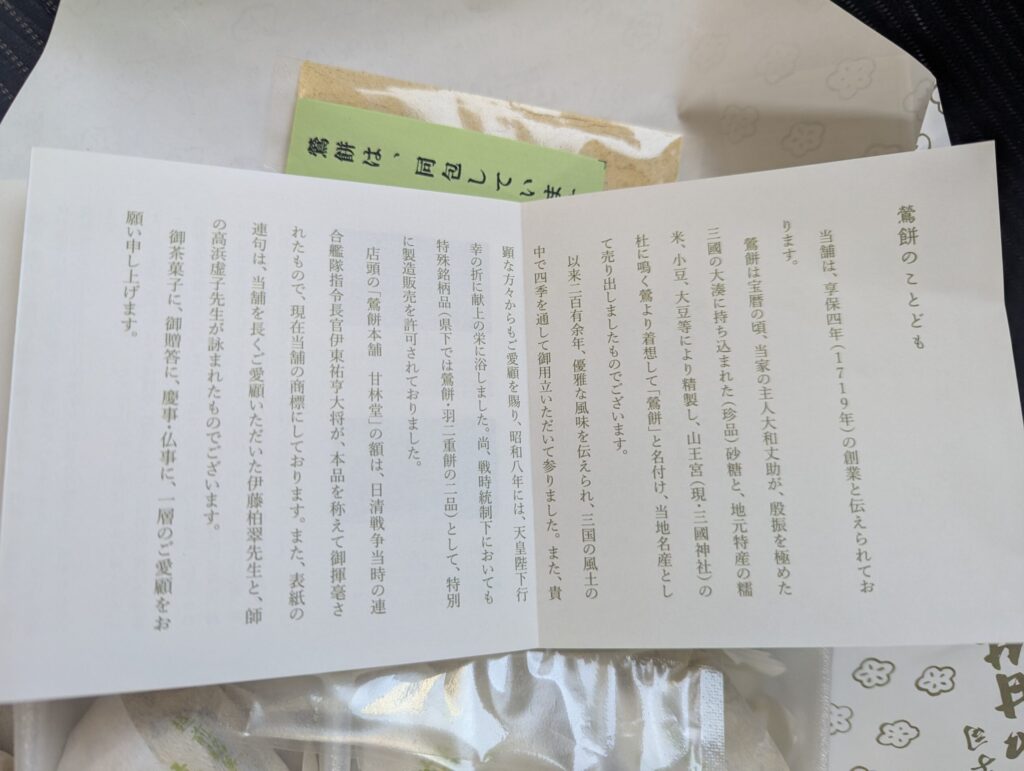 鶯餅は、同包していま
鶯餅のことども
当舗は、享保四年（1719年）の創業と伝えられてお
ります。
鶯餅は宝暦の頃、当家の主人大和丈助が、殷振を極めた
三國の大湊に持ち込まれた（珍品）砂糖と、地元特産の糯
米、小豆、大豆等により精製し、山王宮（現・三國神社）の
杜に鳴く鶯より着想して「鶯餅」と名付け、当地名産とし
て売り出しましたものでございます。
以来二百有余年、優雅な風味を伝えられ、三国の風土の
中で四季を通して御用立いただいて参りました。また、貴
顕な方々からもご愛顧を賜り、昭和八年には、天皇陛下行
幸の折に献上の栄に浴しました。尚、戦時統制下においても
特殊銘柄品（県下では鶯餅・羽二重餅の二品）として、特別
に製造販売を許可されておりました。
店頭の「鶯餅本舗　甘林堂」の額は、日清戦争当時の連
合艦隊指令長官伊東祐亨大将が、本品を称えて御揮毫さ
れたもので、現在当舗の商標にしております。また、表紙の
連句は、当舗を長くご愛顧いただいた伊藤柏翠先生と、師
の高浜虚子先生が詠まれたものでございます。
御茶菓子に、御贈答に、慶事・仏事に、一層のご愛顧をお
願い申し上げます。